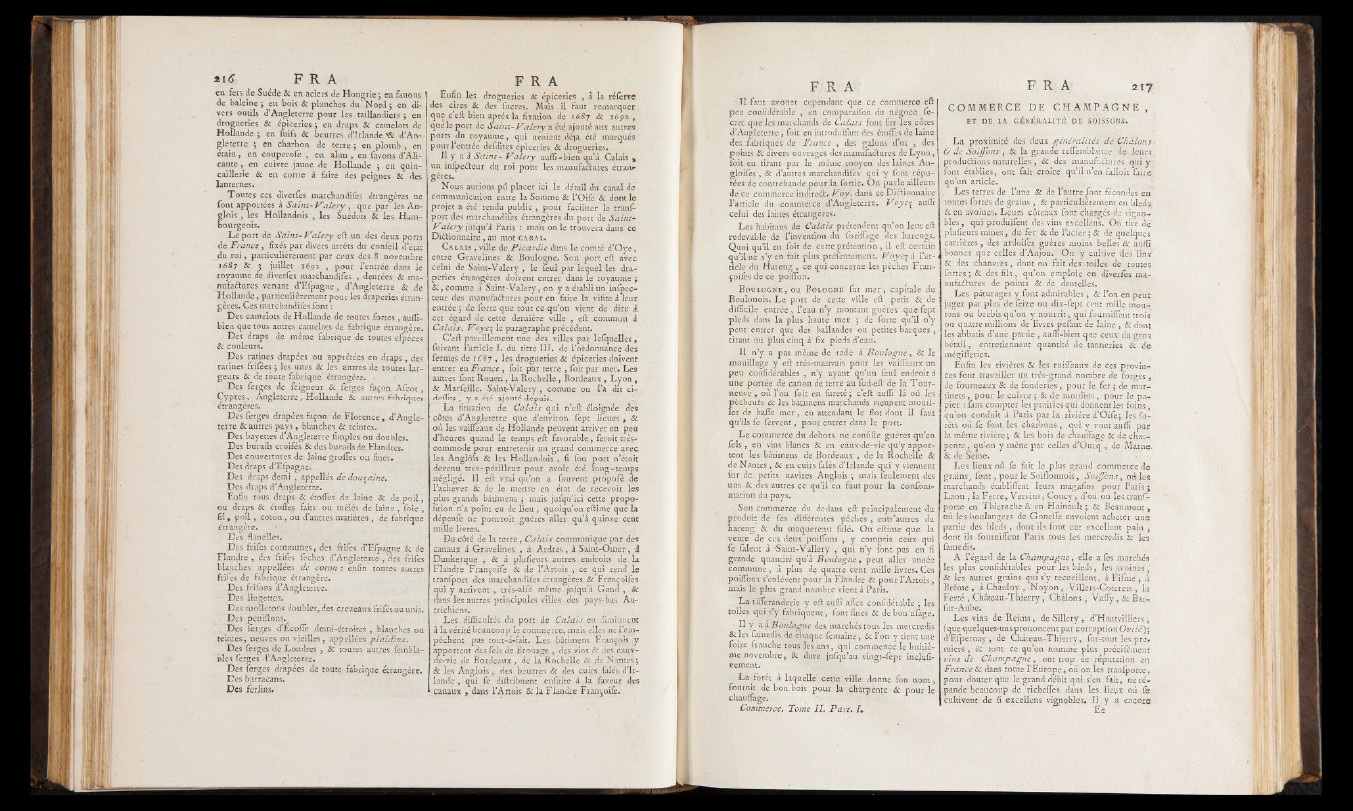 216 FRA
en fers de Suéde & en aciers de Hongrie ; en fanons
de baleine ; en bois & planches du Nord ; en di-
vers outils d'Angleterre pour les taillandiers ; en
drogueries & épiceries ; en draps & camelots de
Hollande ; en suifs & beurres d'Irlande & d'An-
gleterre ; en charbon de terre ; en plomb , en
étain , en couperose , en alun , en savons d'Ali-
cante , en cuivre jaune de Hollande ; en quin-
caillerie & en corne à faire des peignes & des
lanternes.
Toutes ces diverses marchandises étrangères ne
sont apportées à Saint-Valery , que par les An-
glois , les Hollandois , les Suédois & les Ham-
bourgeois.
Le port de Saint-Valery est un des deux ports
de France , fixés par divers arrêts du conseil d'état
du roi , particulièrement par ceux des 8 novembre
1687 & 3 juillet 1692 , pour l'entrée dans le
royaume de diverses marchandises , denrées & ma-
nufactures venant d'Espagne , d'Angleterre & de
Hollande , particulièrement pour les draperies étran-
gères. Ces marchandises sont :
Des camelots de Hollande de toutes sortes , aussi-
bien que tous autres camelots de fabrique étrangère.
Des draps de même fabrique de toutes espèces
& couleurs.
Des ratines drapées ou apprêtées en draps , des
ratines frisées ; les unes & les autres de toutes lar-
geurs & de toute fabrique étrangère.
Des serges de seigneur & serges façon Ascot ,
Cyptes, Angleterre, Hollande & autres fabriques
étrangères.
Des serges drapées façon de Florence , d'Angle-
terre & autres pays , blanches & teintes.
Des bayettes d'Angleterre simples ou doubles.
Des burails croisés & des burails de Flandres.
Des couvertures de laine grosses ou fines.
Des draps d'Espagne.
Des draps demi , appellés de douzaine.
Des draps d'Angleterre.
Enfin tous draps & étoffes de laine & de poil,
ou draps & étoffes faits ou mêlés de laine , soie ,
fil , poil , coton , ou d'autres matières , de fabrique
étrangère.
Des flanelles.
Des frises communes, des frises d'Espagne & de
Flandre , des frises sèches d'Angleterre , des frises
blanches appellées de coton : enfin toutes autres
frises de fabrique étrangère.
Des frisons d'Angleterre.
Des liugettes.
Des molletons doubles, des crezeaux frisés ou unis.
Des penistons.
Des serges d'Ecosse demi-étroites , blanches ou
teintes, neuves ou vieilles , appellées plaidines.
Des serges de Londres , & toutes autres sembla-
bles serges d'Angleterre.
Des serges drapées de toute fabrique étrangère.
Des barracans.
Des ferlins.
FRA
Enfin les drogueries & épiceries , à la réserve
des cires & des sucres. Mais il faut remarquer
que c'est bien après la fixation de 1687 & 1692 ,
que le port de Saint-Valery a été ajouté aux autres
ports du royaume , qui avoient déja été marqués
pour l'entrée desdites épiceries & drogueries.
Il y a à Saint-Valery aussi-bien qu'à Calais ,
un inspecteur du roi pour les manufactures étran-
gères.
Nous aurions pû placer ici le détail du canal de
communication entre la Somme & l'Oise & dont le
projet a été rendu public , pour faciliter le trans-
port des marchandises étrangères du port de Saint-
Valery jusqu'à Paris : mais on le trouvera dans ce
Dictionnaire , au mot CANAL.
CALAIS , ville de Picardie dans le comté d'Oye,
entre Gravelines & Boulogne. Son port est avec
celui de Saint-Valery , le seul par lequel les dra-
peries étrangères doivent entrer dans le royaume ;
& , comme à Saint-Valery , on y a établi un inspec-
teur des manufactures pour en faire la visite à leur
entrée ; de sorte que tout ce qu'on vient de dire à
cet égard de cette dernière ville , est commun à
Calais. Voyez le paragraphe précédent.
C'est pareillement une des villes par lesquelles ,
suivant l'article I. du titre III. de l'ordonnance des
fermes de 1687 , les drogueries & épiceries doivent
entrer en France , soit par terre , soit par mer. Les
autres sont Rouen , la Rochelle , Bordeaux , Lyon ,
& Marseille. Saint-Valery , comme on l'a dit ci-
dessus , y a été ajouté depuis.
La situation de Calais qui n'est éloignée des
côtes d'Angleterre que d'environ sept lieues , &
où les vaisseaux de Hollande peuvent arriver en peu
d'heures quand le temps est favorable , seroit très-
commode pour entretenir un grand commerce avec
les Anglois & les Hollandois , si son port n'étoit
devenu très-périlleux pour avoir été long-temps
négligé. Il est vrai qu'on a souvent proposé de
l'achever & de le mettre en état de recevoir les
plus grands bâtimens ; mais jusqu'ici cette propo-
sition n'a point eu de lieu , quoiqu'on estime que la
dépense ne pourroit guères aller qu'à quinze cent
mille livres.
Du côté de la terre , Calais communique par des
canaux à Gravelines , à Ardres , à Saint-Omer , à
Dunkerque , & à plusieurs autres endroits de la
Flandre Françoise & de l'Artois , ce qui rend le
transport des marchandises étrangères & Françoises
qui y arrivent , très-aisé même jusqu'à Gand , &
dans les autres principales villes des pays-bas Au-
trichiens.
Les difficultés du port de Calais en diminuent
à la vérité beaucoup le commerce, mais elles ne l'em-
pêchent pas tout-à-fait. Les bâtimens François y
apportent des sels de Brouage , des vins & des eaux-
de-vie de Bordeaux , de la Rochelle & de Nantes ;
& les Anglois , des beurres & des cuirs salés d'Ir-
lande , qui se distribuent ensuite à la faveur des
canaux , dans l'Artois & la Flandre Françoise.
FRA
Il faut avouer cependant que ce commerce est
peu considérable , en comparaison du négoce se-
cret que les marchands de Calais font sur les côtes
d'Angleterre , soit en introduisant des étoffes de laine
des fabriques de France , des galons d'or , des
points & divers ouvrages des manufactures de Lyon ,
soit en tirant par le même moyen des laines An-
gloises , & d'autres marchandises qui y sont répu-
tées de contrebande pour la sortie. On parle ailleurs
de ce commerce indirect. Voy. dans ce Dictionnaire
l'article du commerce d'Angleterre. Voyez aussi
celui des laines étrangères.
Les habitans de Calais prétendent qu'on leur est
redevable de l'invention du sorissage des harengs.
Quoi qu'il en soit de cette prétention , il est certain
qu'il ne s'y en fait plus présentement. Voyez à l'ar-
ticle du Hareng , ce qui concerne les pêches Fran-
çoises de ce poisson.
BOULOGNE , ou BOLOGNE sur mer , capitale du
Boulonois. Le port de cette ville est petit & de
difficile entrée , l'eau n'y montant guères que sept
pieds dans la plus haute mer ; de sorte qu'il n'y
peut entrer que des ballandes ou petites barques ,
tirant au plus cinq à six pieds d'eau.
Il n'y a pas même de rade à Boulogne , & le
mouillage y est très-mauvais pour les vaisseaux un
peu considérables , n'y ayant qu'un seul endroit à
une portée de canon de terre au sud-est de la Tour-
neuve , où l'on soit en sureté ; c'est aussi là où les
pêcheurs & les bâtimens marchands viennent mouil-
ler de basse mer , en attendant le flot dont il faut
qu'ils se servent , pour entrer dans le port.
Le commerce du dehors ne consiste guères qu'en
sels , en vins blancs & en eaux-de-vie qu'y appor-
tent les bâtimens de Bordeaux , de la Rochelle &
de Nantes , & en cuirs salés d'Irlande qui y viennent
sur de petits navires Anglois ; mais seulement des
uns & des autres ce qu'il en faut pour la consom-
mation du pays.
Son commerce du dedans est principalement du
produit de ses différentes pêches , entr'autres du
hareng & du maquereau salé. On estime que la
vente de ces deux poissons , y compris ceux qui
se salent à Saint-Vallery , qui n'y sont pas en si
grande quantité qu'à Boulogne , peut aller année
commune , à plus de quatre cent mille livres. Ces
poissons s'enlèvent pour la Flandre & pour l'Artois ,
mais le plus grand nombre vient à Paris.
La tisseranderie y est aussi assez considérable ; les
toiles qui s'y fabriquent , sont fines & de bon usage.
Il y a à Boulogne des marchés tous les mercredis
& les samedis de chaque semaine , & l'on y tient une
foire franche tous les ans , qui commence le huitiè-
me novembre , & dure jusqu'au vingt-sept inclusi-
vement.
La forêt à laquelle cette ville donne son nom ,
fournit de bon bois pour la charpente & pour le
chauffage.
Commerce. Tome II. Part. I.
FRA 217
COMMERCE DE CHAMPAGNE ,
ET DE LA GÉNÉRALITÉ DE SOISSONS.
La proximité des deux généralités de Châlons
& de Soissons , & la grande ressemblance de leurs
productions naturelles , & des manufactures qui y
sont établies , ont fait croire qu'il n'en falloit faire
qu'un article.
Les terres de l'une & de l'autre sont fécondes en
toutes sortes de grains , & particulièrement en bleds
& en avoines. Leurs côteaux sont chargés de vigno-
bles , qui produisent des vins excellens. On tire de
plusieurs mines , du fer & de l'acier ; & de quelques
carrières , des ardoises guères moins belles & aussi
bonnes que celles d'Anjou. On y cultive des lins
& des chanvres , dont on fait des toiles de toutes
sortes ; & des fils , qu'on emploie en diverses ma-
nufactures de points & de dentelles.
Les pâturages y sont admirables , & l'on en peut
juger par plus de seize ou dix-sept cent mille mou-
tons ou brebis qu'on y nourrit , qui fournissent trois
ou quatre millions de livres pesant de laine , & dont
les abbatis d'une partie , aussi-bien que ceux du gros
bétail , entretiennent quantité de tanneries & de
mégisseries.
Enfin les rivières & les ruisseaux de ces provin-
ces font travailler un très-grand nombre de forges ,
de fourneaux & de fonderies , pour le fer ; de mar-
tinets , pour le cuivre ; & de moulins , pour le pa-
pier : sans compter les prairies qui donnent les foins ,
qu'on conduit à Paris par la rivière d'Oise ; les fo-
rêts où se font les charbons , qui y vont aussi par
la même rivière ; & les bois de chauffage & de char-
pente , qu'on y mène par celles d'Ourq , de Marne
& de Seine.
Les lieux où se fait le plus grand commerce de
grains , sont , pour le Soissonnois , Soissons , où les
marchands établissent leurs magasins pour Paris ;
Laon , la Ferre , Vervins , Coucy , d'où on les trans-
porte en Thierache & en Hainault ; & Beaumont ,
où les boulangers de Gonesse envoient acheter une
partie des bleds , dont ils font cet excellent pain ,
dont ils fournissent Paris tous les mercredis & les
samedis.
A l'égard de la Champagne , elle a ses marchés
les plus considérables pour les bleds , les avoines ,
& les autres grains qui s'y recueillent , à Fisme , à
Brême , à Chaulny , Noyon , Villers-Coterets , la
Ferté , Château-Thierry , Châlons , Vassy , & Bar-
sur-Aube.
Les vins de Reims , de Sillery , d'Hautvilliers ,
(que quelques-uns prononcent par corruption Ovilé) ;
d'Espernay , de Château-Thierry , sur-tout les pre-
miers , & tout ce qu'on nomme plus précisément
vins de Champagne , ont trop de réputation en
France & dans toute l'Europe , où on les transporte ,
pour douter que le grand débit qui s'en fait , ne ré-
pande beaucoup de richesses dans les lieux où se
cultivent de si excellens vignobles. Il y a encore
Ee